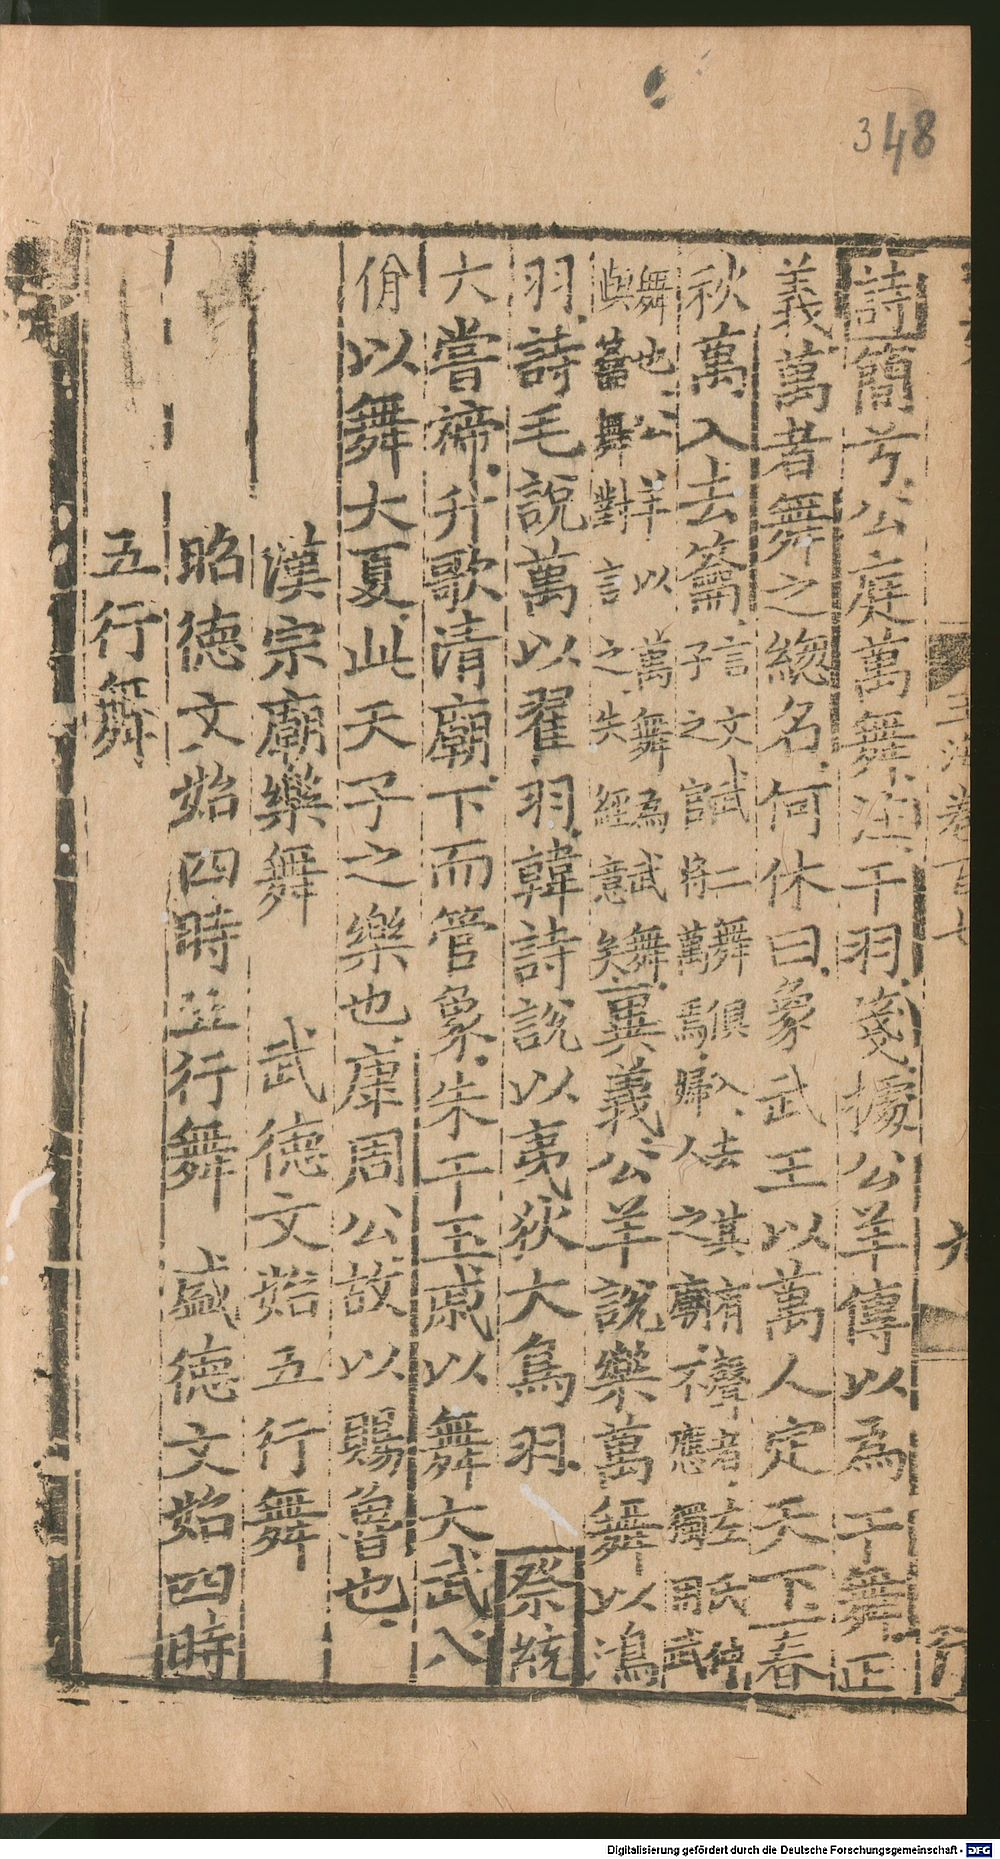 348
玉海卷百七
九
行
詩簡兮公庭萬舞注干羽箋據公羊傳以為干舞正
義萬者舞之緫名何休曰象武王以萬人定天下春
秋萬入去籥言文武二舞俱入去其有聲者左氏仲
子之宮將萬焉婦人之廟不應獨用武
舞也公羊以萬舞為武舞
與籥舞對言之失經意矣異義公羊說樂萬舞以鴻
羽詩毛說萬以翟羽韓詩說以夷狄大鳥羽 祭統
大嘗禘升歌清廟下而管象朱干玉戚以舞大武八
佾以舞大夏此天子之樂也康周公故以賜魯也
漢宗廟樂舞 武德文始五行舞
昭德文始四時五行舞 盛德文始四時
五行舞
Digitalisierung gefördert durch die Deutsche Forschungsgemeinschaft - DFG